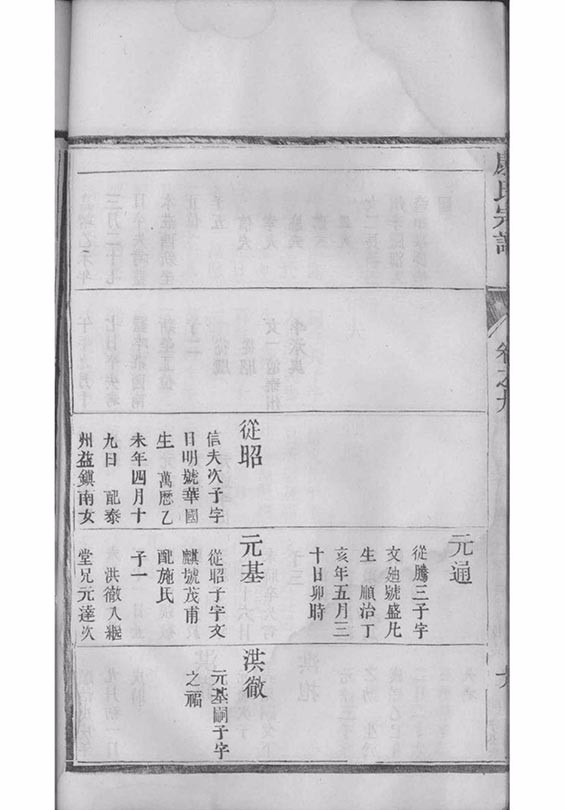 氏宗譜
卷之九
從昭
信夫次子字
日明號華國
生 萬曆乙
未年四月十
九日 配泰
州益鎮南女
元通
從騰三子字
文廸號盛凡
生 順治丁
亥年五月三
十日卯時
元基
從昭子字文
麒號茂甫
配施氏
子一
洪徹入繼
堂兄元達次
洪徹
元基嗣子字
之福